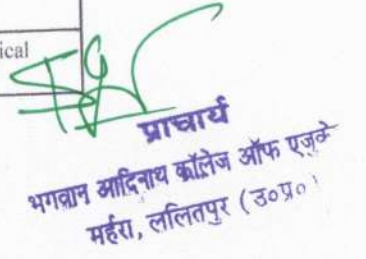 ical
प्राचार्य
भगवान आदिनाथ कॉलेज ऑफ एजुके
मर्हरा, ललितपुर (उ०प्र०)